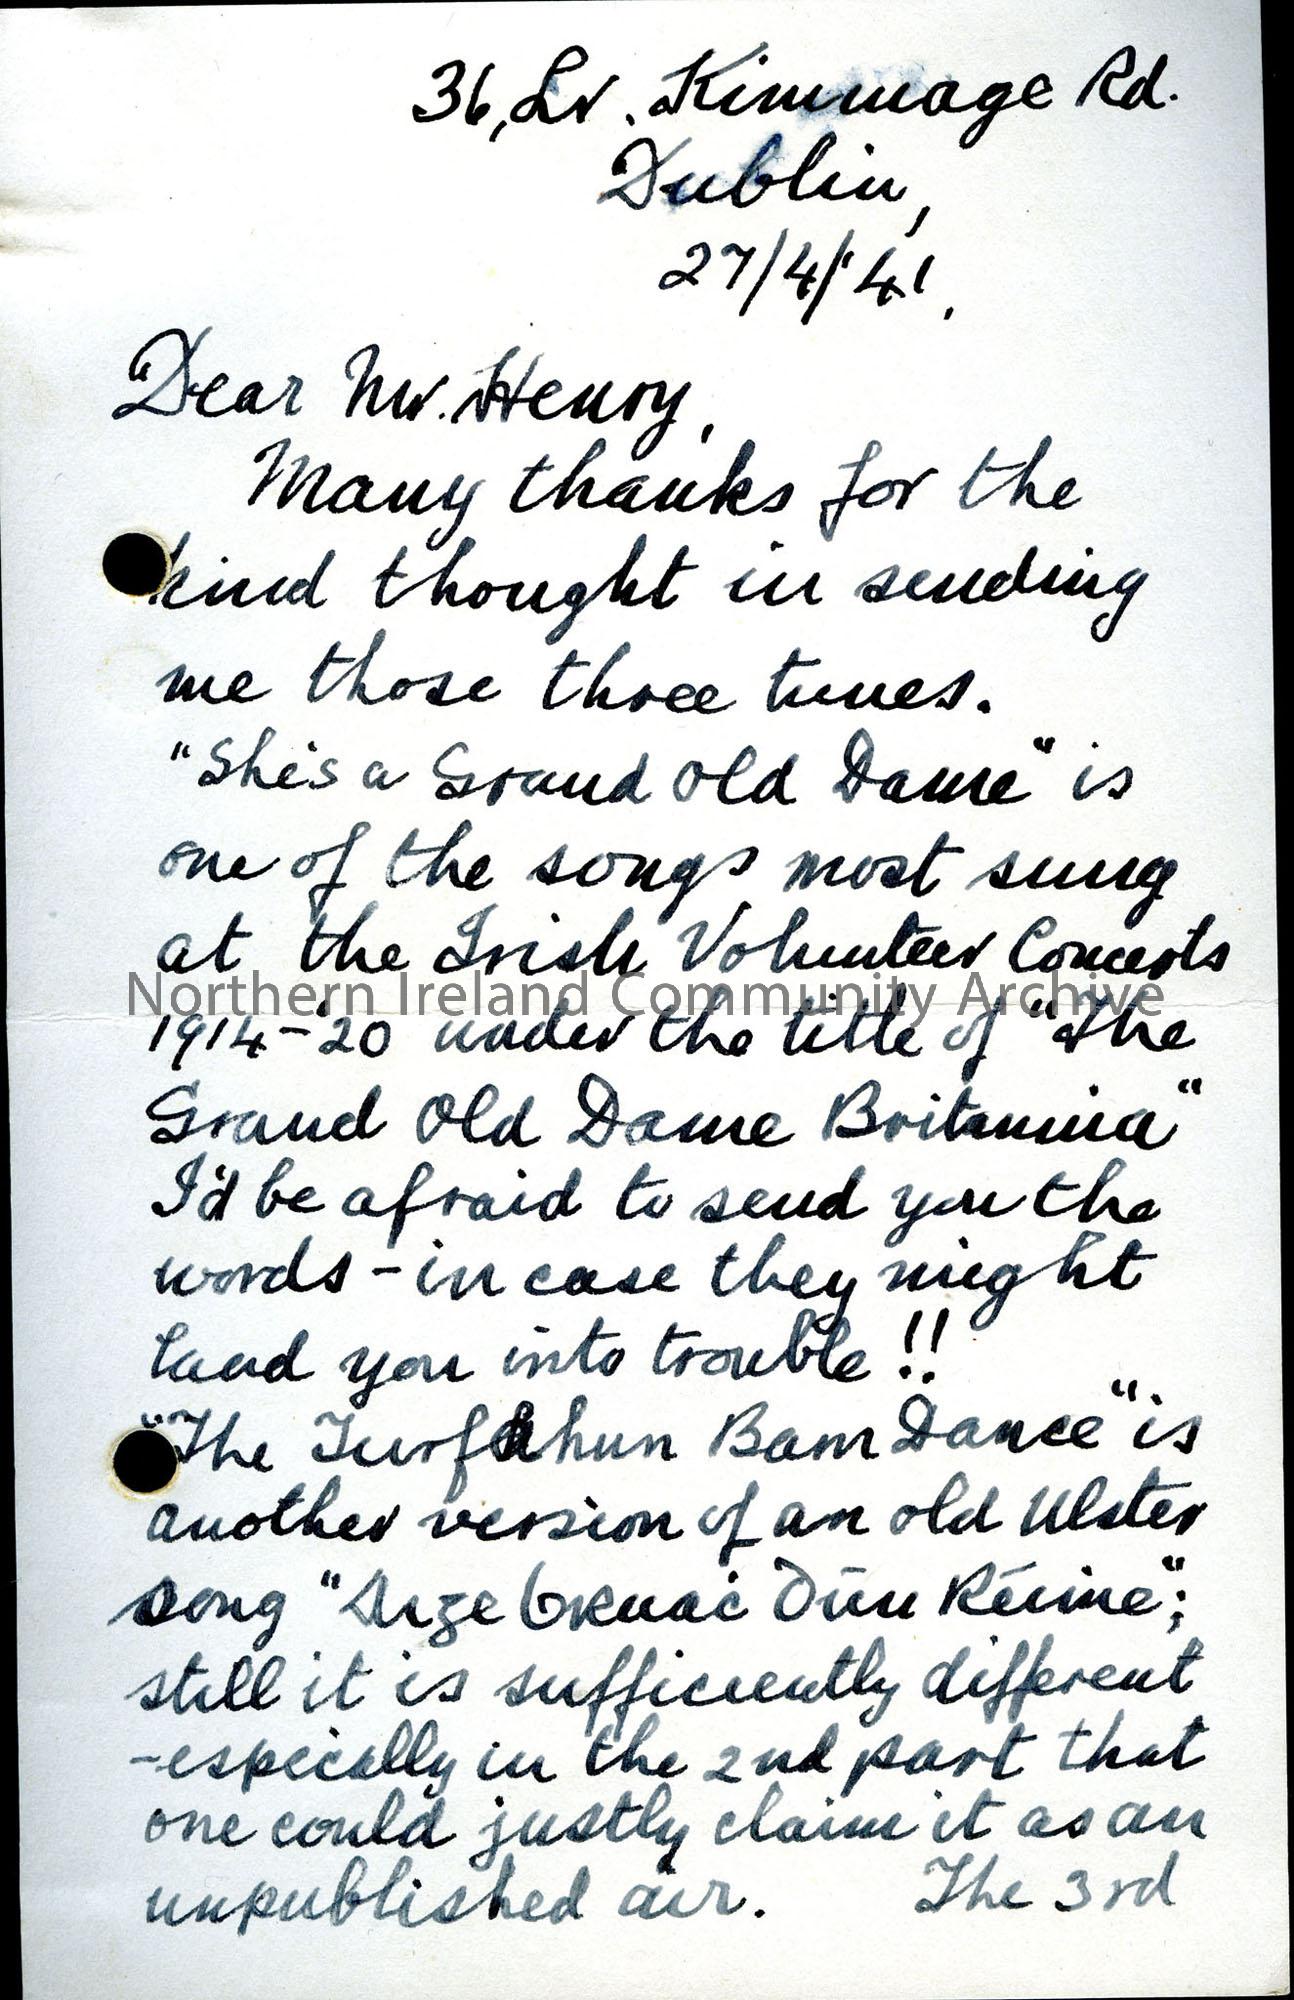 36, Lr. Kimmage Rd.
Dublin,
27/4/'41.
Dear Mr. Henry,
Many thanks for the
kind thought in sending
me those three tunes.
"She's a Grand Old Dame" is
one of the songs most sung
at the Irish Volunteer Concerts
Northern Ireland Community Archive
1914-'20 under the title of "The
Grand Old Dame Britannia"
I'd be afraid to send you the
words - in case they might
land you into trouble!!
"The Turfahun Barn Dance" is
another version of an old Ulster
song "Dún Réime";
still it is sufficiently different
- especially in the 2nd part that
one could justly claim it as an
unpublished air. The 3rd